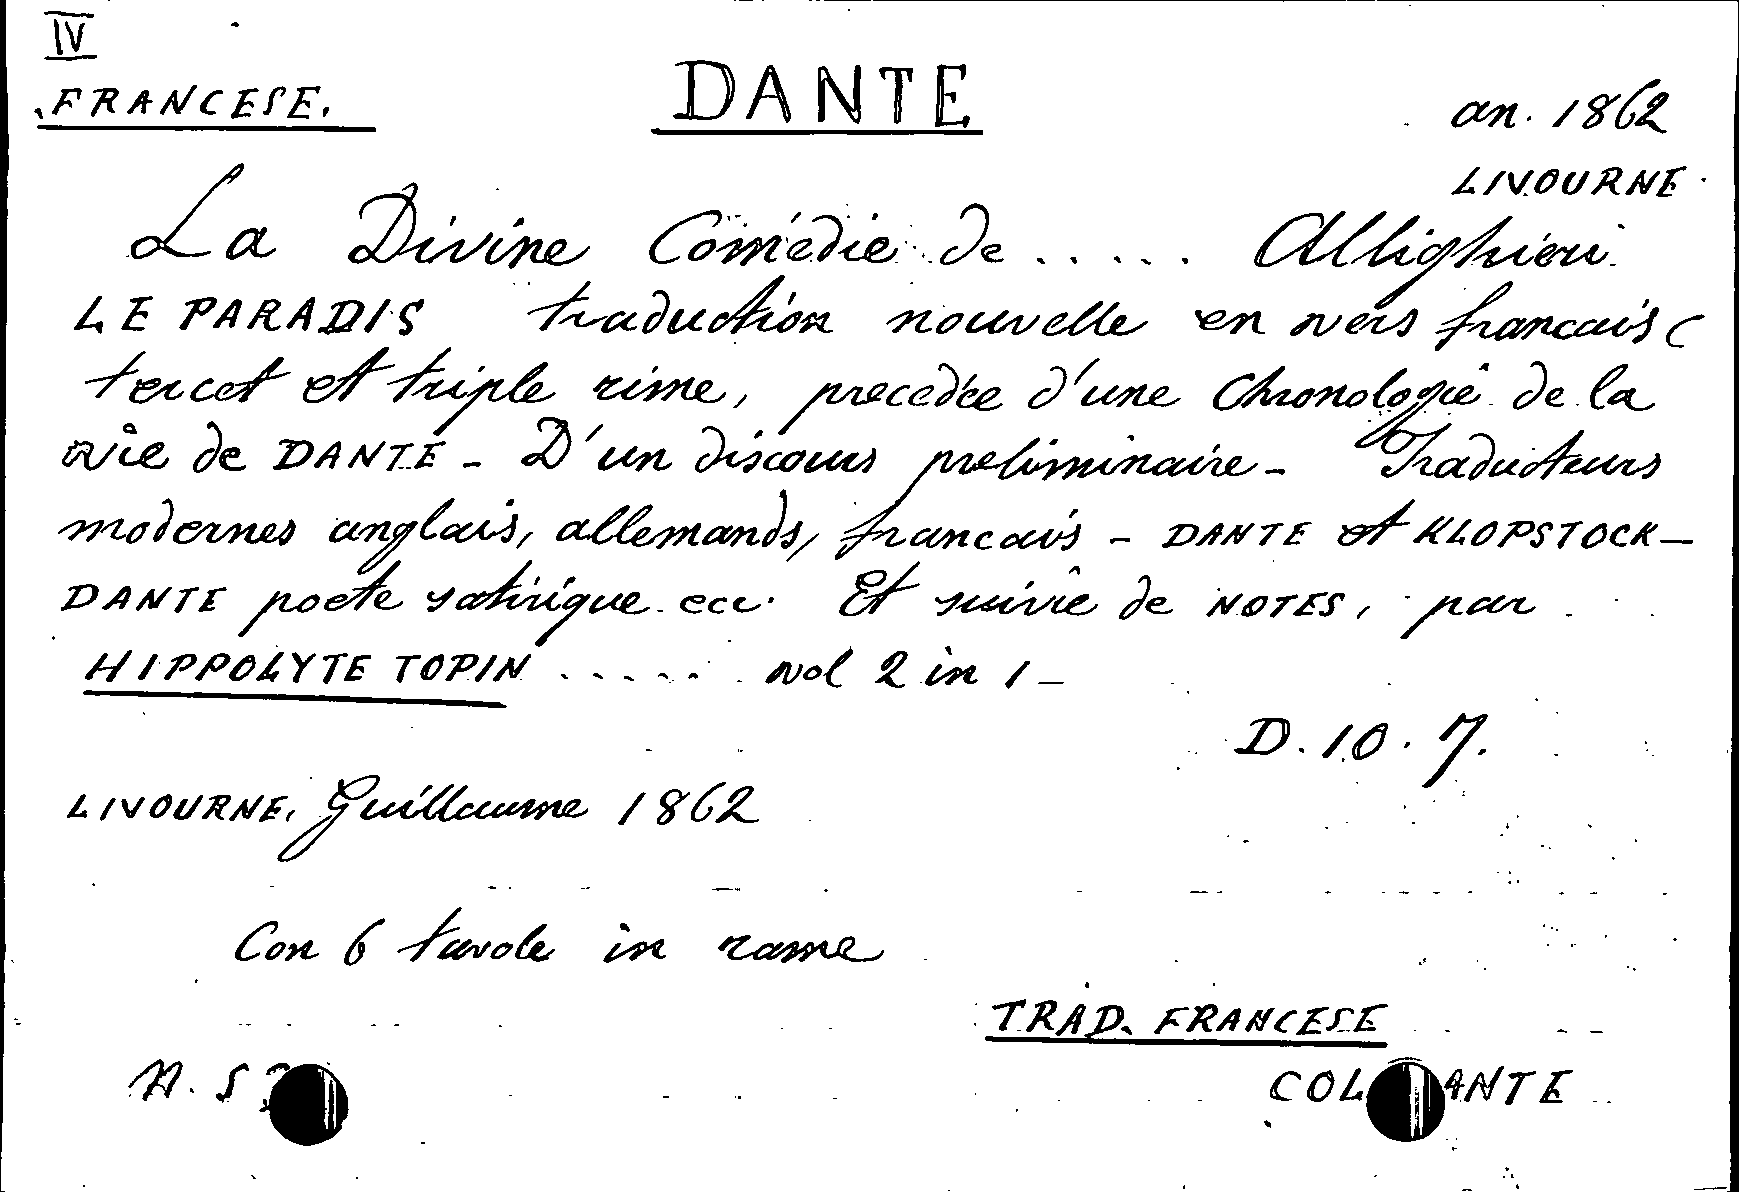 IV
.FRANCESE. DANTE an. 1862
LIVOURNE
La Divine Comédie de ..... Allighieri.
LE PARADIS traduction nouvelle en vers francais (
tercet et triple rime, precedée d'une Chronologie de la
vie de DANTE - D'un discours preliminaire - Traducteurs
modernes anglais, allemands, francais - DANTE et KLOPSTOCK -
DANTE poete satirique ecc. Et suivie de NOTES, par
HIPPOLYTE TOPIN ..... vol 2 in 1 -
D. 10. 7.
LIVOURNE, Guillaume 1862
Con 6 tavole in rame
TRAD. FRANCESE
N. 5
COL ANTE